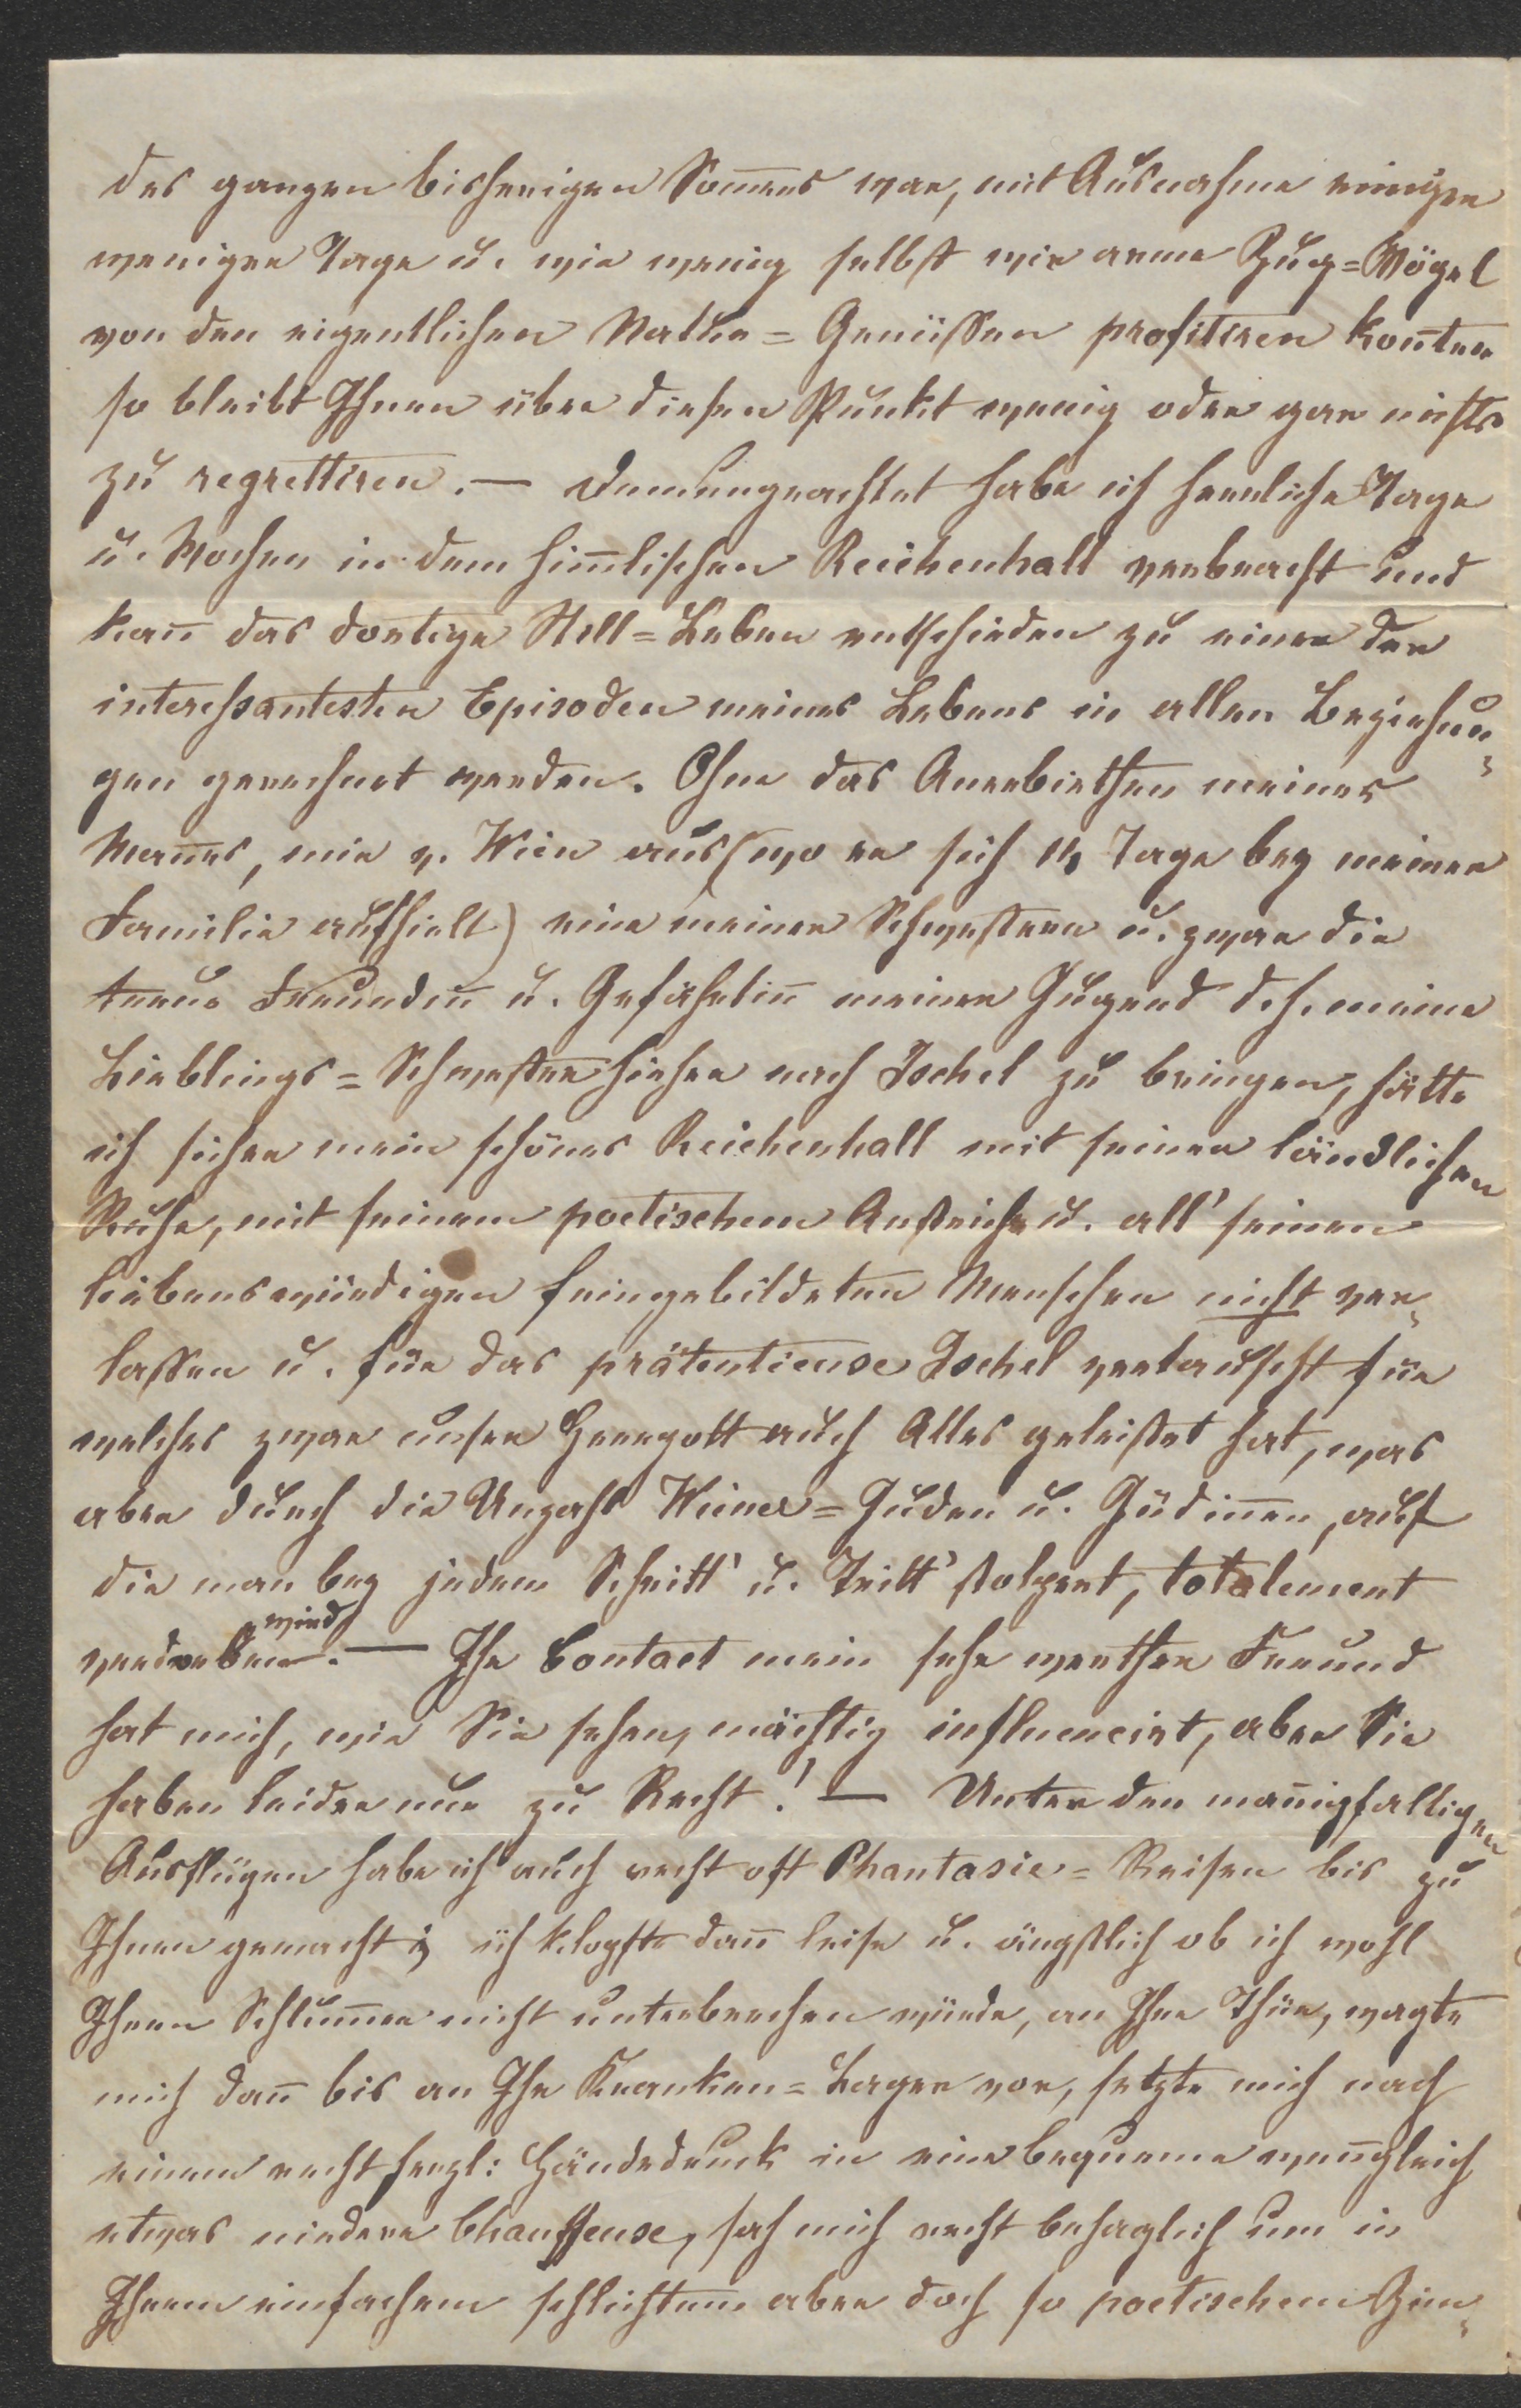 des ganzen bisherigen Som̅ers war, mit Ausnahme einiger
weniger Tage u. wie wenig selbst wir arme Zug=Vögel
von den eigentlichen Natur=Genüssen profitiren kon̅ten
so bleibt Ihnen über diesen Punkt wenig oder gar nichts
zu regrettiren. — Demungeachtet habe ich herrliche Tage
u. Wochen in dem him̅lischen Reichenhall verbracht und
kan̅ das dortige Still=Leben entschieden zu einer der
interessantesten Episoden meines Lebens in allen Beziehun-
gen gerechnet werden. Ohne das Anerbiethen meines
Man̅es, mir v. Wien aus (wo er sich 14 Tage bey meiner
Familie aufhielt) eine meiner Schwestern u. zwar die
treue Freundin̅ u. Gefährtin̅ meiner Jugend d. h. meine
Lieblings=Schwester hieher nach Ischel zu bringen, hätte
ich sicher mein schönes Reichenhall mit seiner ländlichen
Ruhe, mit seinem poetischem Anstriche u. all' seinen
liebenswürdigen feingebildeten Menschen nicht ver-
lassen u. für das prätentieuse Ischel vertauscht für
welches zwar unser Herrgott auch Alles geleistet hat, was
aber durch die Unzahl Wiener=Juden u. Jüdin̅en, auf
die man bey jedem Schritt' u. Tritt' stolpert, totalement
verdorben wird. — Ihr Contact mein sehr werther Freund
hat mich, wie Sie sehen, mächtig influencirt, aber Sie
haben leider nur zu Recht! — Unter den man̅igfaltigen
Ausflügen habe ich auch recht oft Phantasie=Reisen bis zu
Ihnen gemacht; ich klopfte dan̅ leise u. ängstlich ob ich wohl
Ihren Schlum̅er nicht unterbrechen würde, an Ihre Thür, wagte
mich dan̅ bis an Ihr Kranken=Lager vor, setzte mich nach
einem recht herzl: Händedruck in eine bequeme wen̅gleich
etwas niedere Chauffeuse, sah mich recht behaglich um in
Ihrem einfachem schlichtem aber doch so poetischem Zim-